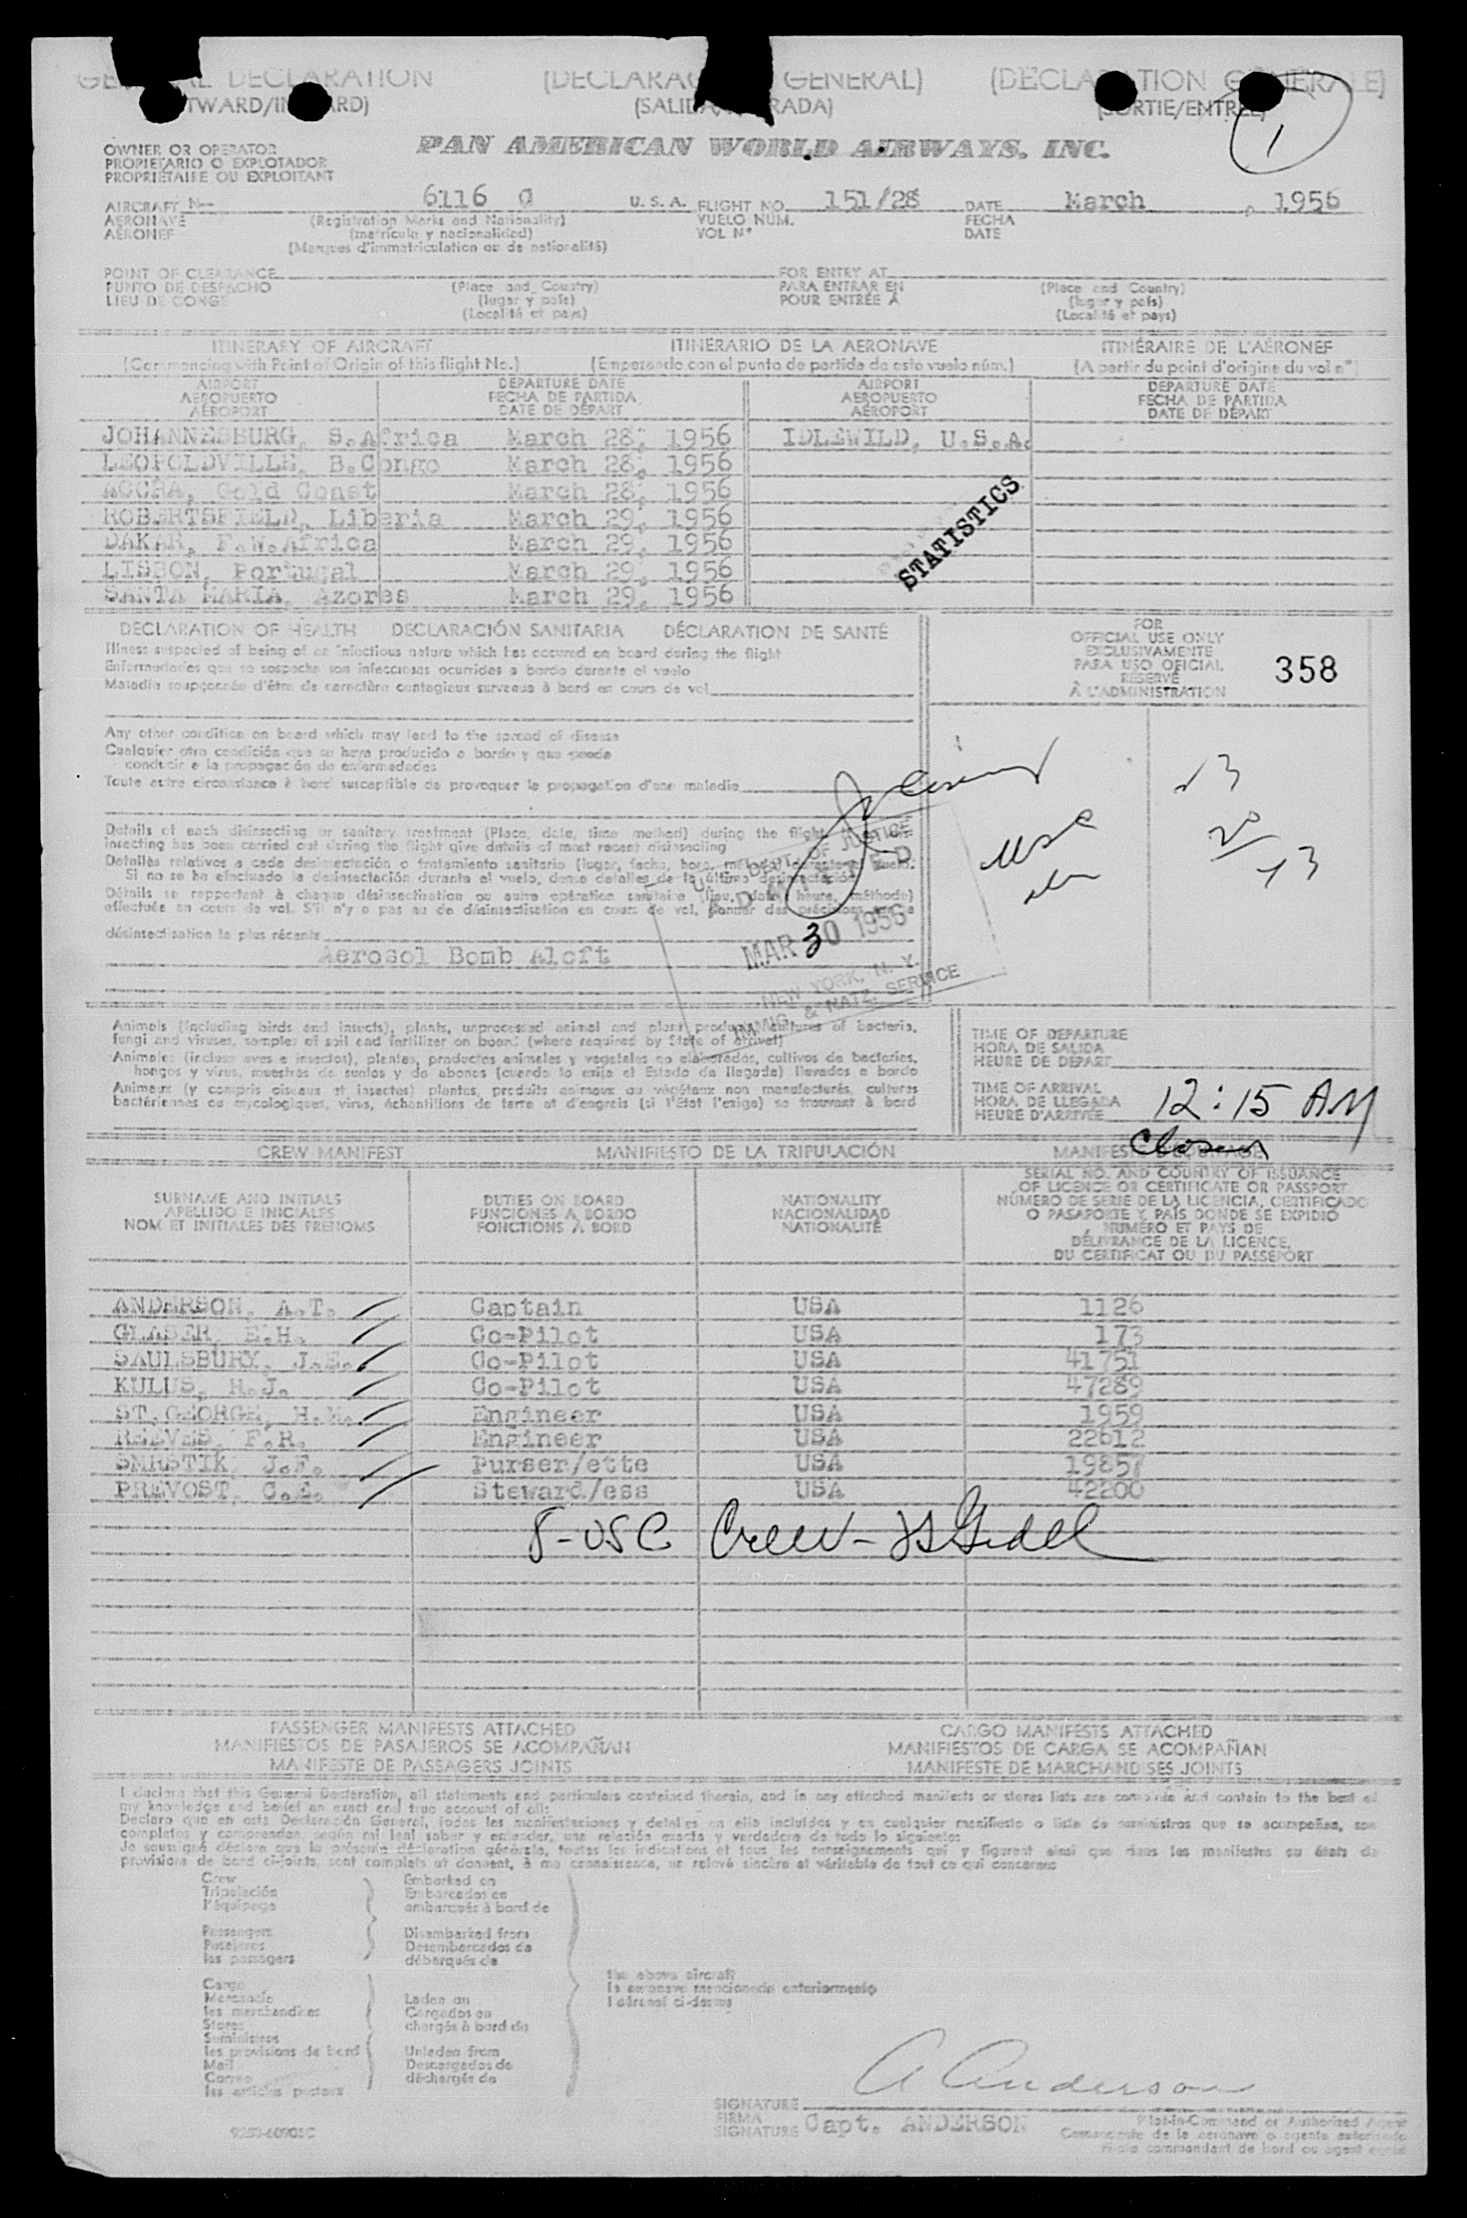 DECLARATION (DECLARAC GENERAL) (DÉCLARATION GÉNÉRALE)
(SALIDA RADA) (SORTIE/ENTRÉE)
1
OWNER OR OPERATOR
PROPIETARIO O EXPLOTADOR
PROPRIÉTAIRE OU EXPLOITANT
PAN AMERICAN WORLD AIRWAYS, INC.
AIRCRAFT N- 6116 U. S. A. FLIGHT NO. 151/28 DATE March , 1956
AERONAVE (Registration Marks and Nationality) VUELO NÚM. FECHA
AÉRONEF (matrícula y nacionalidad) VOL Nº DATE
(Marques d'immatriculation ou de nationalité)
POINT OF CLEARANCE FOR ENTRY AT
PUNTO DE DESPACHO (Place and Country) PARA ENTRAR EN (Place and Country)
LIEU DE CONGÉ (lugar y país) POUR ENTRÉE À (lugar y país)
(Localité et pays) (Localité et pays)
ITINERARY OF AIRCRAFT ITINERARIO DE LA AERONAVE ITINÉRAIRE DE L'AÉRONEF
(Commencing with Point of Origin of this flight No.) (Empezando con el punto de partida de este vuelo núm.) (A partir du point d'origine du vol nº)
AIRPORT DEPARTURE DATE AIRPORT DEPARTURE DATE
AEROPUERTO FECHA DE PARTIDA AEROPUERTO FECHA DE PARTIDA
AÉROPORT DATE DE DÉPART AÉROPORT DATE DE DÉPART
JOHANNESBURG, S.Africa March 28, 1956 IDLEWILD, U.S.A.
LEOPOLDVILLE, B.Congo March 28, 1956
ACCRA, Gold Coast March 28, 1956
ROBERTSFIELD, Liberia March 29, 1956
DAKAR, F.W.Africa March 29, 1956
LISBON, Portugal March 29, 1956
SANTA MARIA, Azores March 29, 1956
STATISTICS
DECLARATION OF HEALTH DECLARACIÓN SANITARIA DÉCLARATION DE SANTÉ
Illness suspected of being of an infectious nature which has occured on board during the flight
Enfermedades que se sospecha son infecciosas ocurridas a bordo durante el vuelo
Maladie soupçonnée d'être de caractère contagieux survenue à bord en cours de vol
FOR
OFFICIAL USE ONLY
EXCLUSIVAMENTE
PARA USO OFICIAL
RÉSERVÉ
À L'ADMINISTRATION
358
Any other condition on board which may lead to the spread of disease
Cualquier otra condición que se haya producido a bordo y que puede
conducir a la propagación de enfermedades
Toute autre circonstance à bord susceptible de provoquer la propagation d'une maladie
Details of each disinsecting or sanitary treatment (Place, date, time method) during the flight
insecting has been carried out during the flight give details of most recent disinsecting
Detalles relativos a cada desinsectación o tratamiento sanitario (lugar, fecha, hora,
Si no se ha efectuado la desinsectación durante el vuelo, dense detalles de la última desinsectación
Détails se rapportant à chaque désinsectisation ou autre opération sanitaire (lieu, date, heure, méthode)
effectuée en cours de vol. S'il n'y a pas eu de désinsectisation en cours de vol, donner des précisions
désinsectisation la plus récente
Aerosol Bomb Aloft
U. S. DEPT. OF JUSTICE
ADMITTED
MAR 30 1956
NEW YORK, N. Y.
IMMIG. & NATZ. SERVICE
USC
13
20
13
Animals (including birds and insects), plants, unprocessed animal and plant products, cultures of bacteria,
fungi and viruses, samples of soil and fertilizer on board (where required by State of arrival)
Animales (incluso aves e insectos), plantas, productos animales y vegetales no elaborados, cultivos de bacterias,
hongos y virus, muestras de suelos y de abonos (cuando lo exija el Estado de llegada) llevados a bordo
Animaux (y compris oiseaux et insectes) plantes, produits animaux ou végétaux non manufacturés, cultures
bactériennes ou mycologiques, virus, échantillons de terre et d'engrais (si l'État l'exige) se trouvant à bord
TIME OF DEPARTURE
HORA DE SALIDA
HEURE DE DÉPART
TIME OF ARRIVAL
HORA DE LLEGADA
HEURE D'ARRIVÉE
12:15 AM
CREW MANIFEST MANIFIESTO DE LA TRIPULACIÓN
SURNAME AND INITIALS DUTIES ON BOARD NATIONALITY SERIAL NO. AND COUNTRY OF ISSUANCE
APELLIDO E INICIALES FUNCIONES A BORDO NACIONALIDAD OF LICENCE OR CERTIFICATE OR PASSPORT
NOM ET INITIALES DES PRÉNOMS FONCTIONS À BORD NATIONALITÉ NÚMERO DE SERIE DE LA LICENCIA, CERTIFICADO
O PASAPORTE Y PAÍS DONDE SE EXPIDIÓ
NUMÉRO ET PAYS DE
DÉLIVRANCE DE LA LICENCE,
DU CERTIFICAT OU DU PASSEPORT
ANDERSON, A.T. Captain USA 1126
GLASER, E.H. Co-Pilot USA 173
SAULSBURY, J.E. Co-Pilot USA 41751
KULUS, H.J. Co-Pilot USA 47289
ST.GEORGE, H.W. Engineer USA 1959
REEVES, F.R. Engineer USA 22612
SMRSTIK, J.F. Purser/ette USA 19857
PREVOST, C.E. Steward/ess USA 42200
8-USC Crew-
PASSENGER MANIFESTS ATTACHED CARGO MANIFESTS ATTACHED
MANIFIESTOS DE PASAJEROS SE ACOMPAÑAN MANIFIESTOS DE CARGA SE ACOMPAÑAN
MANIFESTE DE PASSAGERS JOINTS MANIFESTE DE MARCHANDISES JOINTS
I declare that this General Declaration, all statements and particulars contained therein, and in any attached manifests or stores lists are complete and contain to the best of
my knowledge and belief an exact and true account of all:
Declaro que en esta Declaración General, todas las manifestaciones y detalles en ella incluidos y en cualquier manifiesto o lista de suministros que se acompañan, son
completos y comprenden, según mi leal saber y entender, una relación exacta y verdadera de todo lo siguiente:
Je soussigné déclare que la présente déclaration générale, toutes les indications et tous les renseignements qui y figurent ainsi que dans les manifestes ou états de
provisions de bord ci-joints, sont complets et donnent, à ma connaissance, un relevé sincère et véritable de tout ce qui concerne:
Crew Embarked on
Tripulación Embarcados en
l'équipage embarqués à bord de
Passengers Disembarked from
Pasajeros Desembarcados de
les passagers débarqués de
the above aircraft
la aeronave mencionada anteriormente
l'aéronef ci-dessus
Cargo
Mercancía Laden on
les marchandises Cargados en
Stores chargés à bord de
Suministros
les provisions de bord Unladen from
Mail Descargados de
Correo déchargés de
les articles postaux
A Anderson
SIGNATURE
FIRMA
SIGNATURE Capt. ANDERSON
Pilot-in-Command or Authorized Agent
Comandante de la aeronave o agente autorizado
Pilote commandant de bord ou agent